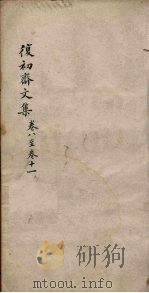 復初齋文集 卷八至卷十一
www.dulib.com